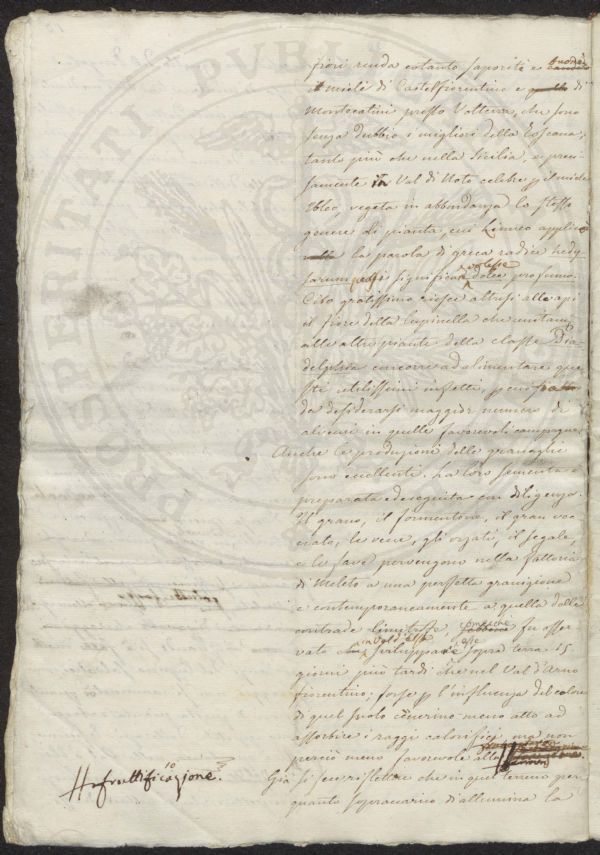 fiori renda cotanto saporite e
il miele di Castelfiorentino e quello di
Montecatini presso Volterra, che sono
senza dubbio i migliori della Toscana;
tanto più che nella Sicilia, e preci-
samente in Val di Noto celebre p il miele
Ibleo, vegeta in abbondanza lo stesso
genere di pianta, cui Linneo applicò
la parola di greca radice hedy-
sarum significa dolce profumo.
Cibo gratissimo riesce altresì alle api
il fiore della Lupinella che unitam.
alle altre piante della classe Dia
delphia concorre ad alimentare que
sti utilissimi insetti, p cui
da desiderarsi maggior numero di
alveari in quelle favorevoli campagne.
Anche le produzioni delle granaglie
sono eccellenti. La loro sementa è
preparata ed eseguita con diligenza.
Il grano, il formentone, il gran voc
ciato, le vecce, gli orzati, il segale,
e le fave pervengono nella fattoria
di Meleto a una perfetta granigione
e contemporaneamente a quella delle
contrade limitrofe, fu osser
vato sviluppare sopra terra 15
giorni più tardi che nel Val d'Arno
fiorentino; forse p l'influenza del colore
di quel suolo cenerino meno atto ad
assorbire i raggi calorifici, ma non
perciò meno favorevole alla
# fruttificazione.
Già si fece riflettere che in quel terreno per
quanto sopracarico d'allumina la